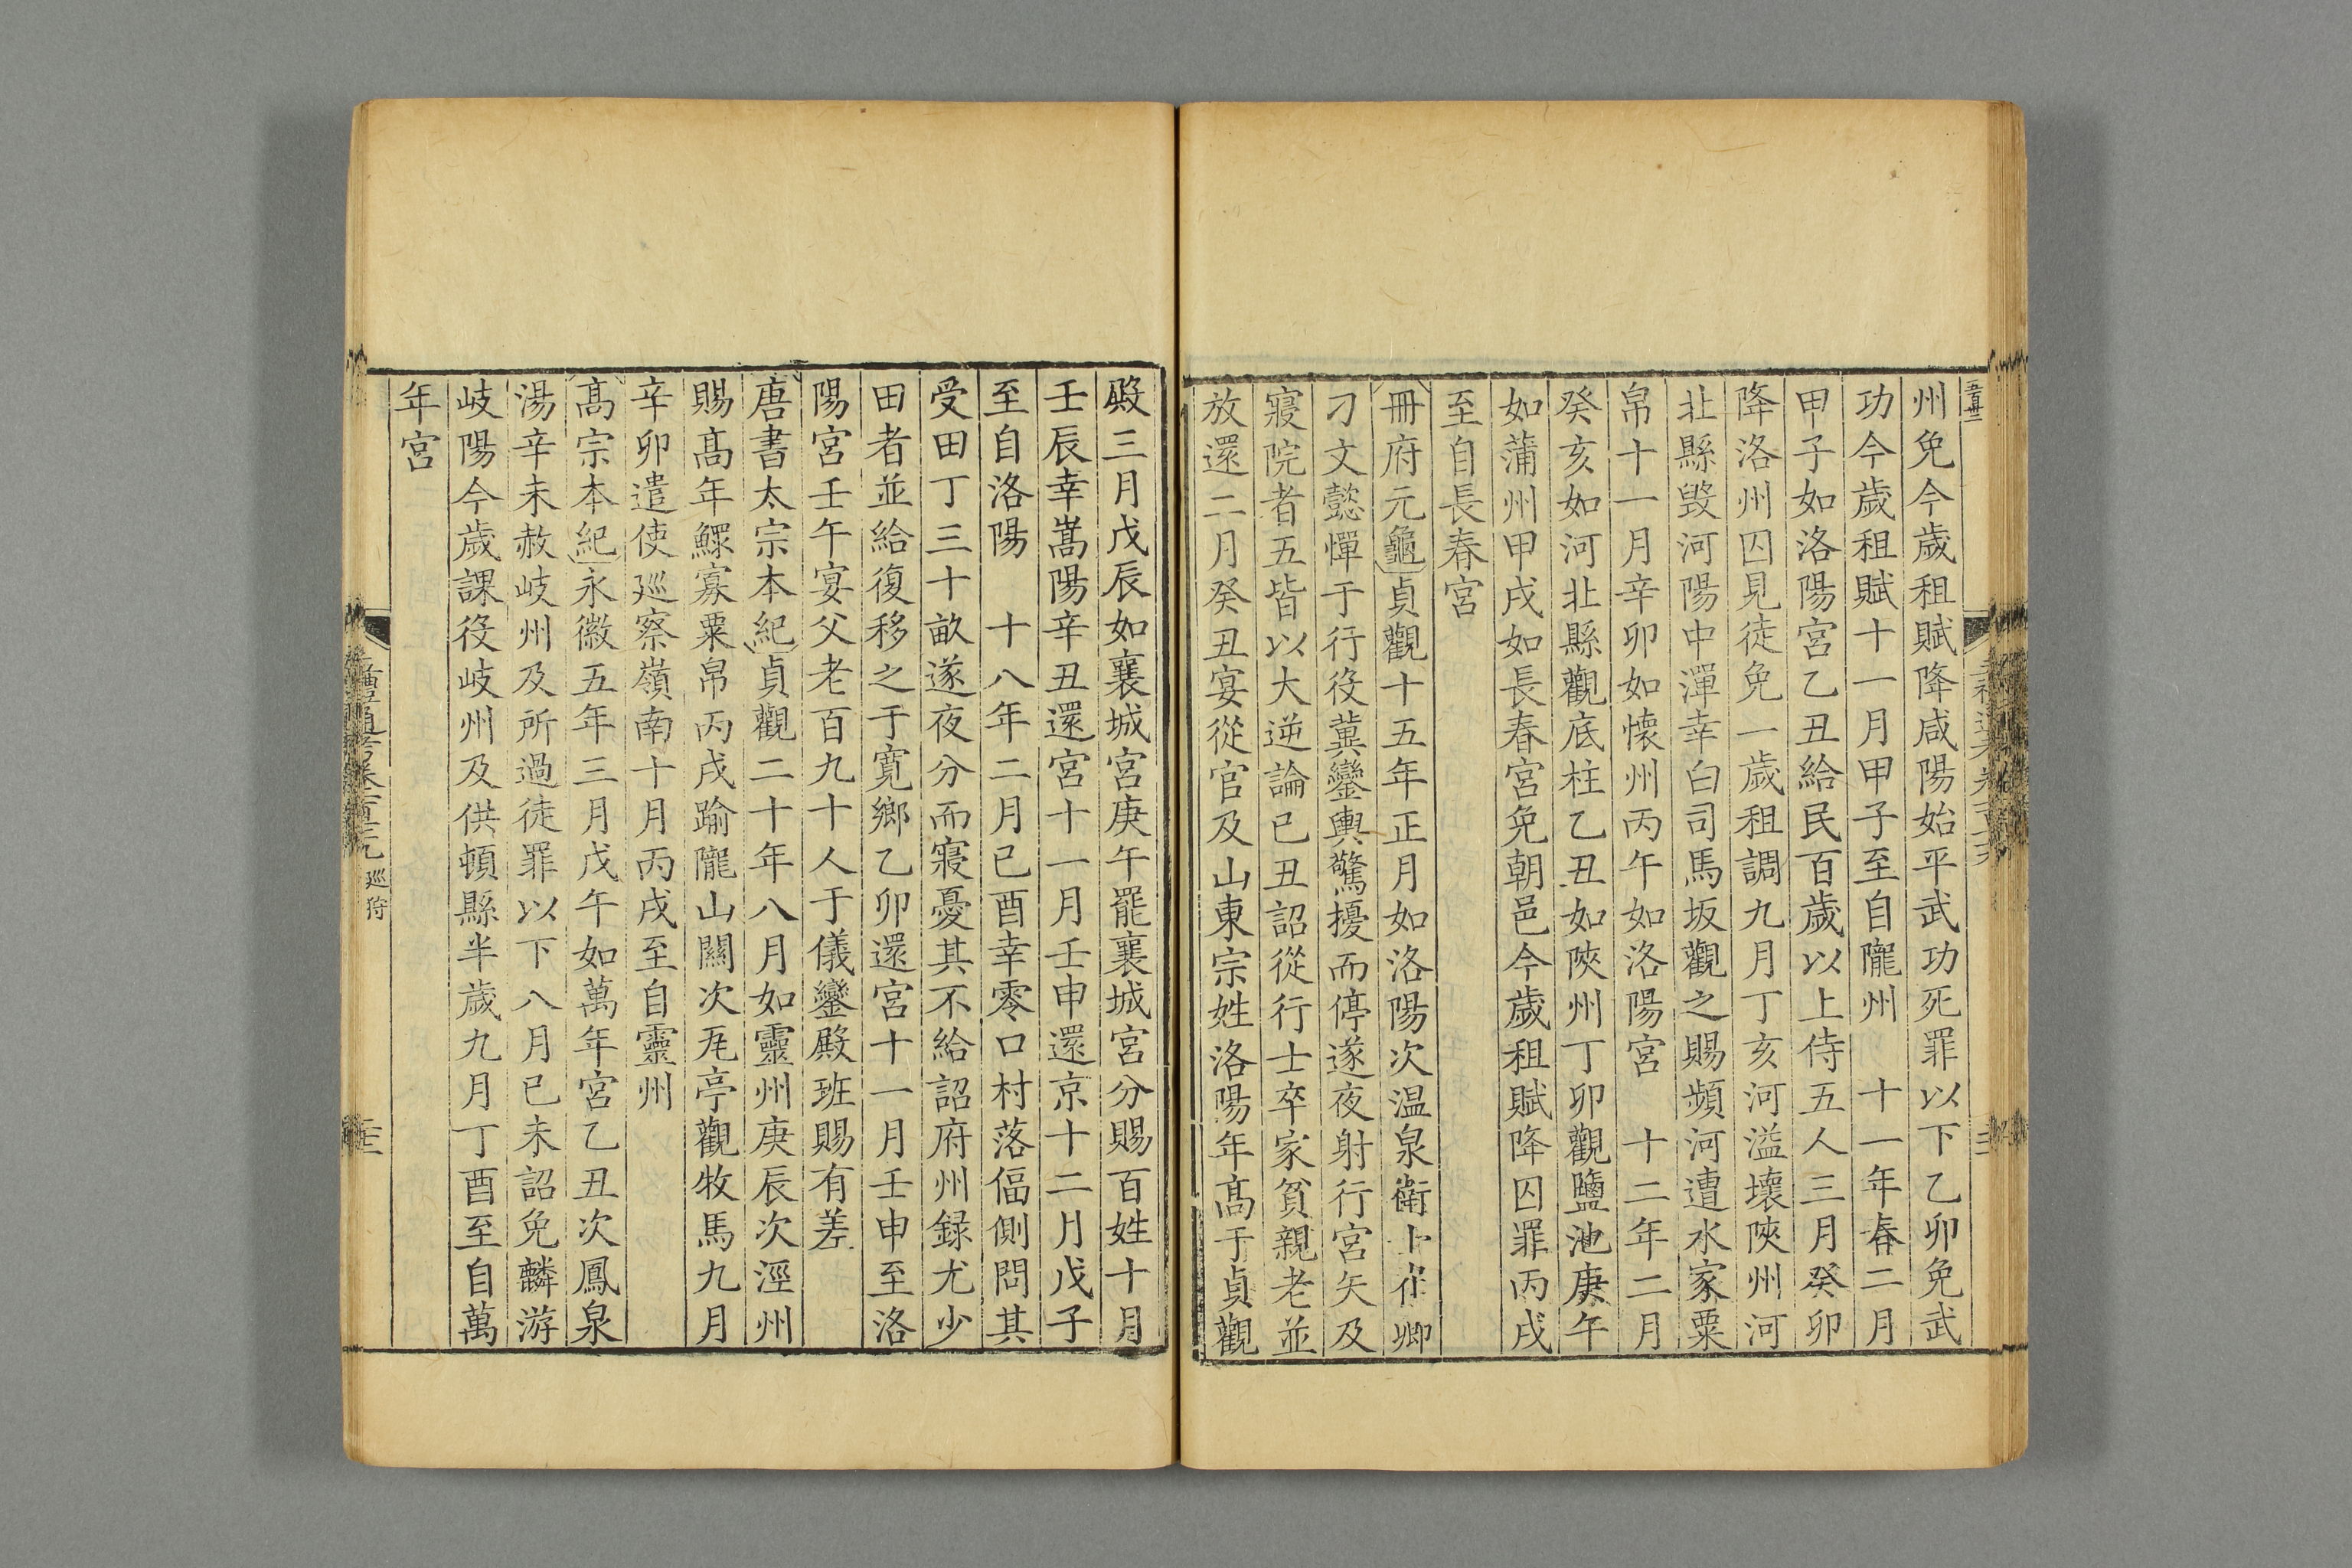 州免今歲租賦降咸陽始平武功死罪以下乙卯免武
功今歲租賦十一月甲子至自隴州　十一年春二月
甲子如洛陽宮乙丑給民百歲以上侍五人三月癸卯
降洛州囚見徒免一歲租調九月丁亥河溢壞陝州河
北縣毀河陽中潬幸白司馬坂觀之賜頻河遭水家粟
帛十一月辛卯如懷州丙午如洛陽宮　十二年二月
癸亥如河北縣觀底柱乙丑如陝州丁卯觀鹽池庚午
如蒲州甲戌如長春宮免朝邑今歲租賦降囚罪丙戌
至自長春宮
冊府元龜貞觀十五年正月如洛陽次温泉衛士崔卿
刁文懿憚于行役冀鑾輿驚擾而停遂夜射行宮矢及
寢院者五皆以大逆論已丑詔從行士卒家貧親老並
放還二月癸丑宴從官及山東宗姓洛陽年髙于貞觀
殿三月戊辰如襄城宮庚午罷襄城宮分賜百姓十月
壬辰幸嵩陽辛丑還宮十一月壬申還京十二月戊子
至自洛陽　十八年二月已酉幸零口村落偪側問其
受田丁三十畝遂夜分而寢憂其不給詔府州録尤少
田者並給復移之于寛鄉乙卯還宮十一月壬申至洛
陽宮壬午宴父老百九十人于儀鑾殿班賜有差
唐書太宗本紀貞觀二十年八月如靈州庚辰次涇州
賜髙年鰥寡粟帛丙戌踰隴山關次瓦亭觀牧馬九月
辛卯遣使巡察嶺南十月丙戌至自靈州
髙宗本紀永徽五年三月戊午如萬年宮乙丑次鳳泉
湯辛未赦岐州及所過徒罪以下八月已未詔免麟游
岐陽今歲課役岐州及供頓縣半歲九月丁酉至自萬
年宮
巡狩